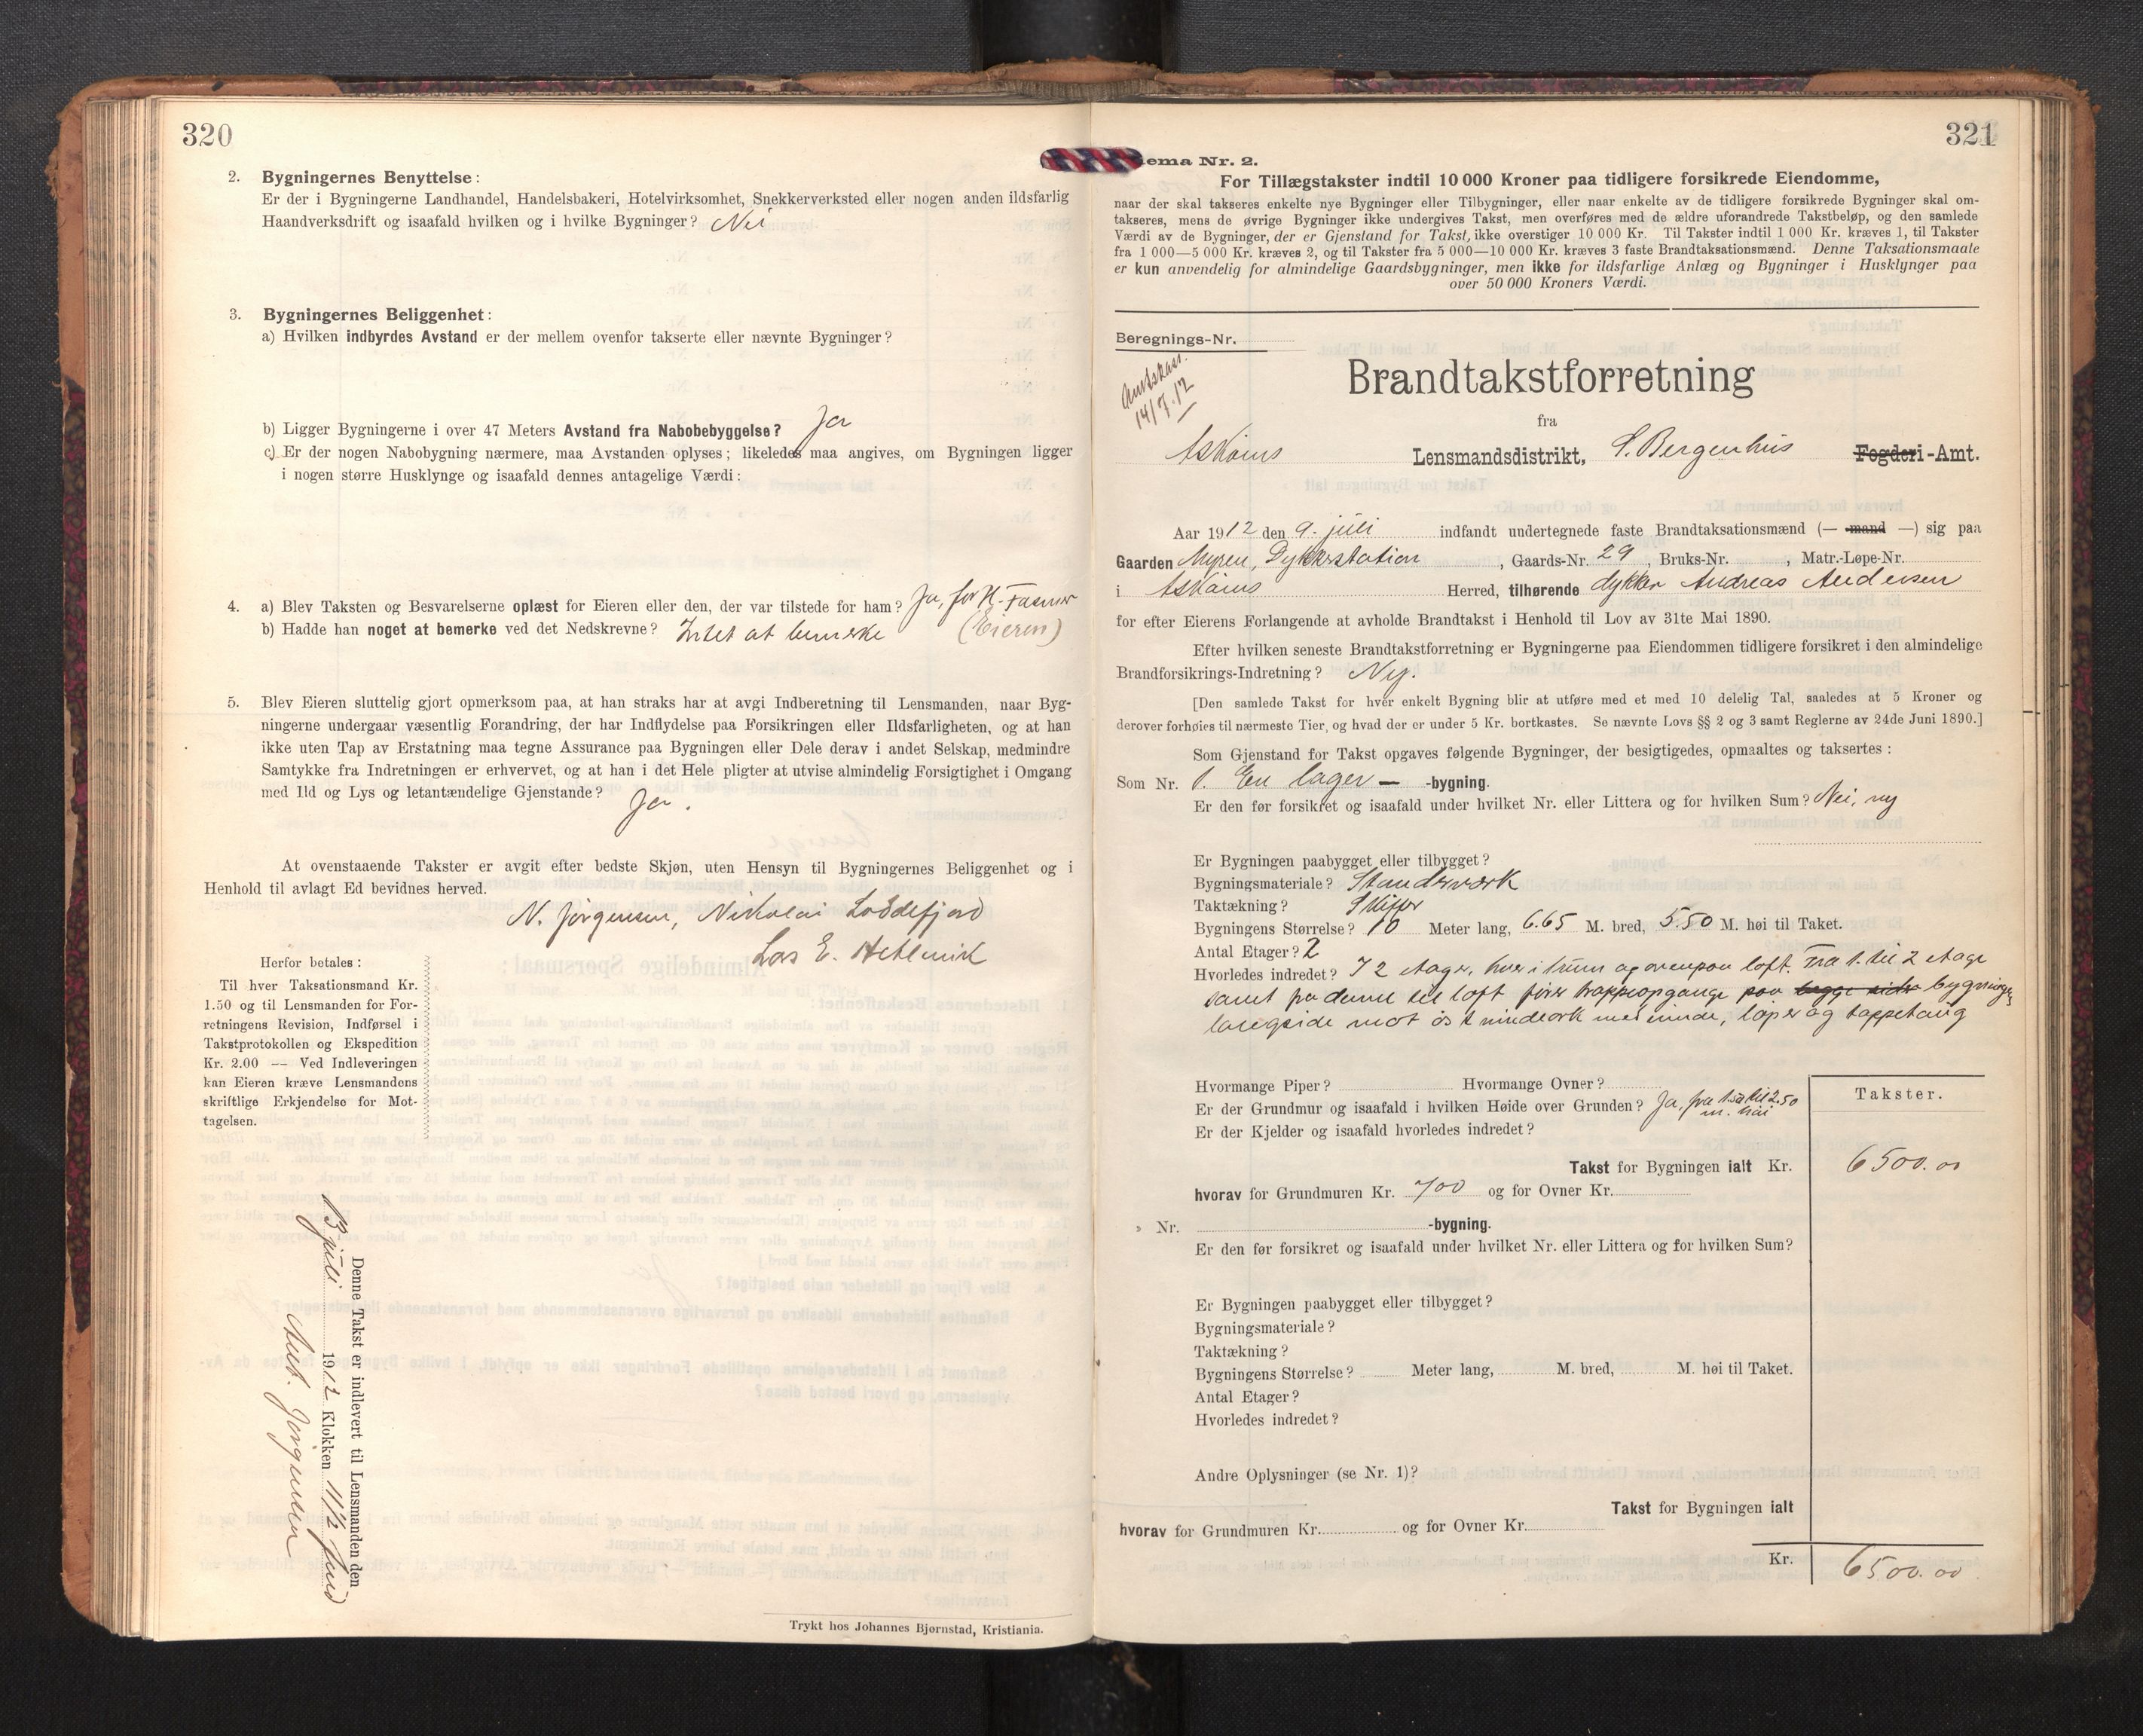 320
2. Bygningernes Benyttelse:
Er der i Bygningerne Landhandel, Handelsbakeri, Hotelvirksomhet, Snekkerverksted eller nogen anden ildsfarlig
Haandverksdrift og isaafald hvilken og i hvilke Bygninger? Nei
3. Bygningernes Beliggenhet:
a) Hvilken indbyrdes Avstand er der mellem ovenfor takserte eller nævnte Bygninger?
b) Ligger Bygningerne i over 47 Meters Avstand fra Nabobebyggelse? Ja
c) Er der nogen Nabobygning nærmere, maa Avstanden oplyses; likeledes maa angives, om Bygningen ligger
i nogen større Husklynge og isaafald dennes antagelige Værdi:
4. a) Blev Taksten og Besvarelserne oplæst for Eieren eller den, der var tilstede for ham? Ja, for H. Fasmer
b) Hadde han noget at bemerke ved det Nedskrevne? Intet at bemerke (Eieren)
5. Blev Eieren sluttelig gjort opmerksom paa, at han straks har at avgi Indberetning til Lensmanden, naar Byg-
ningerne undergaar væsentlig Forandring, der har Indflydelse paa Forsikringen eller Ildsfarligheten, og at han
ikke uten Tap av Erstatning maa tegne Assurance paa Bygningen eller Dele derav i andet Selskap, medmindre
Samtykke fra Indretningen er erhvervet, og at han i det Hele pligter at utvise almindelig Forsigtighet i Omgang
med Ild og Lys og letantændelige Gjenstande? Ja.
At ovenstaaende Takster er avgit efter bedste Skjøn, uten Hensyn til Bygningernes Beliggenhet og i
Henhold til avlagt Ed bevidnes herved.
N. Jørgensen, Nikolai Loddefjord
Lars E.
Herfor betales:
Til hver Taksationsmand Kr.
1.50 og til Lensmanden for For-
retningens Revision, Indførsel i
Takstprotokollen og Ekspedition
Kr. 2.00 — Ved Indleveringen
kan Eieren kræve Lensmandens
skriftlige Erkjendelse for Mot-
tagelsen.
Denne Takst er indlevert til Lensmanden den
13 juli 1912 Klokken 11½ fmd
Ant. Jørgensen
Trykt hos Johannes Bjørnstad, Kristiania.
321
ema Nr. 2.
For Tillægstakster indtil 10 000 Kroner paa tidligere forsikrede Eiendomme,
naar der skal takseres enkelte nye Bygninger eller Tilbygninger, eller naar enkelte av de tidligere forsikrede Bygninger skal om-
takseres, mens de øvrige Bygninger ikke undergives Takst, men overføres med de ældre uforandrede Takstbeløp, og den samlede
Værdi av de Bygninger, der er Gjenstand for Takst, ikke overstiger 10 000 Kr. Til Takster indtil 1 000 Kr. kræves 1, til Takster
fra 1 000—5 000 Kr. kræves 2, og til Takster fra 5 000—10 000 Kr. kræves 3 faste Brandtaksationsmænd. Denne Taksationsmaate
er kun anvendelig for almindelige Gaardsbygninger, men ikke for ildsfarlige Anlæg og Bygninger i Husklynger paa
over 50 000 Kroners Værdi.
Beregnings-Nr.
14/7.12
Brandtakstforretning
fra
Askøins Lensmandsdistrikt, S. Bergenhus Fogderi-Amt.
Aar 1912 den 9. juli indfandt undertegnede faste Brandtaksationsmænd (— mand —) sig paa
Gaarden Myren, Dykkerstation, Gaards-Nr. 29, Bruks-Nr. , Matr.-Løpe-Nr.
i Askøins Herred, tilhørende dykker Andreas Andersen
for efter Eierens Forlangende at avholde Brandtakst i Henhold til Lov av 31te Mai 1890.
Efter hvilken seneste Brandtakstforretning er Bygningerne paa Eiendommen tidligere forsikret i den almindelige
Brandforsikrings-Indretning? Ny.
[Den samlede Takst for hver enkelt Bygning blir at utføre med et med 10 delelig Tal, saaledes at 5 Kroner og
derover forhøies til nærmeste Tier, og hvad der er under 5 Kr. bortkastes. Se nævnte Lovs §§ 2 og 3 samt Reglerne av 24de Juni 1890.]
Som Gjenstand for Takst opgaves følgende Bygninger, der besigtigedes, opmaaltes og taksertes:
Som Nr. 1. En lager— -bygning.
Er den før forsikret og isaafald under hvilket Nr. eller Littera og for hvilken Sum? Nei, ny
Er Bygningen paabygget eller tilbygget?
Bygningsmateriale? Standerværk
Taktækning? Skifer
Bygningens Størrelse? 10 Meter lang, 6.65 M. bred, 5.50 M. høi til Taket.
Antal Etager? 2
Hvorledes indredet? I 2 etager, hver i 1 rum og ovenpaa loft. Fra 1. til 2 etage
samt fra denne til loft fører trappeopgange paa begge sider bygningens
langside mot øst vindeark med vinde, løper og tappetaug
Hvormange Piper? Hvormange Ovner?
Er der Grundmur og isaafald i hvilken Høide over Grunden? Ja, fra 1.50 til 2.50 m. høi
Er der Kjelder og isaafald hvorledes indredet?
Takster.
Takst for Bygningen ialt Kr. 6500.00
hvorav for Grundmuren Kr. 700 og for Ovner Kr.
» Nr. -bygning.
Er den før forsikret og isaafald under hvilket Nr. eller Littera og for hvilken Sum?
Er Bygningen paabygget eller tilbygget?
Bygningsmateriale?
Taktækning?
Bygningens Størrelse? Meter lang, M. bred, M. høi til Taket.
Antal Etager?
Hvorledes indredet?
Andre Oplysninger (se Nr. 1)?
Takst for Bygningen ialt
hvorav for Grundmuren Kr. og for Ovner Kr.
Kr. 6500.00